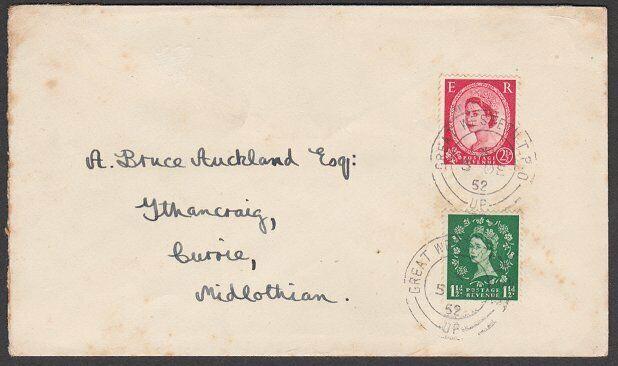 E R
POSTAGE REVENUE
2½D
GREAT WESTERN T.P.O
5 DE
52
UP
A. Bruce Auckland Esq:
Ythancraig,
Currie,
Midlothian.
1½D POSTAGE REVENUE 1½D
GREAT
5
52
UP